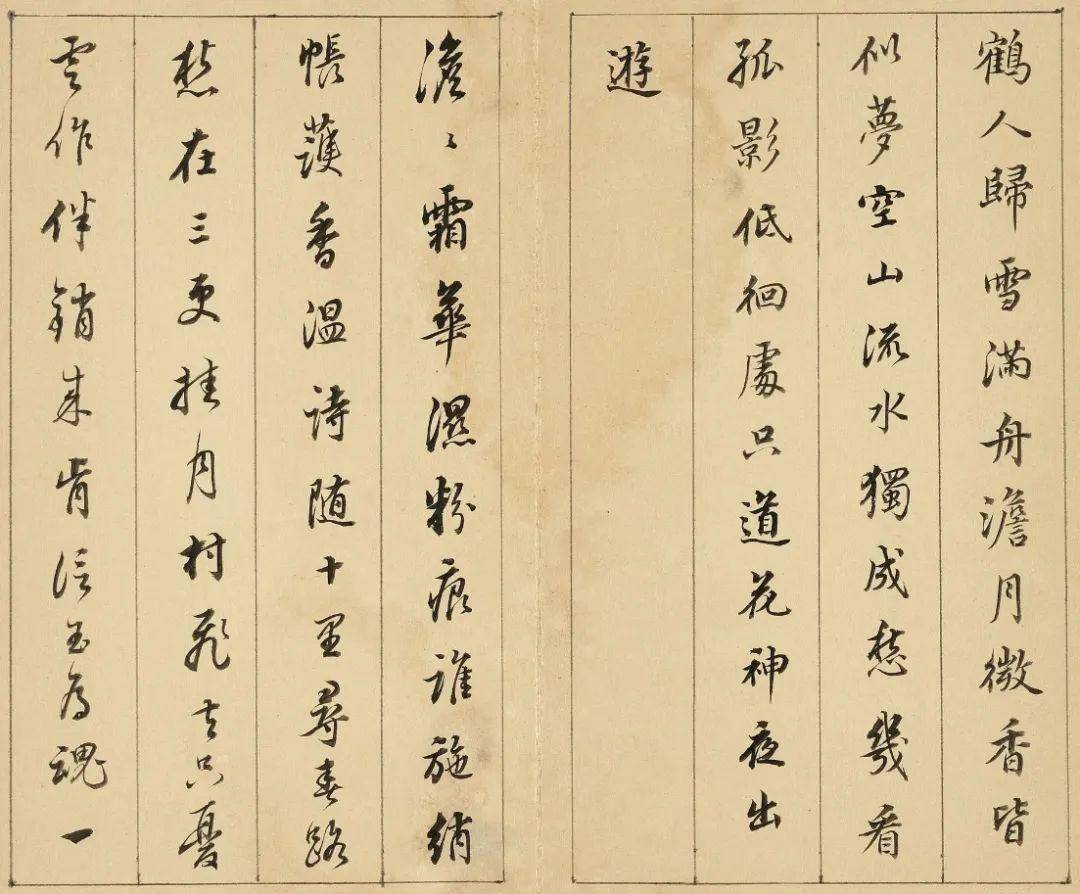 鶴人歸雪滿舟澹月微香皆
似夢空山流水獨成愁幾看
孤影低徊處只道花神夜出
遊
澹〻霜華濕粉痕誰施綃
帳護香溫詩随十里尋春路
愁在三更挂月村飛去只憂
雲作伴銷来肯信玉為魂一